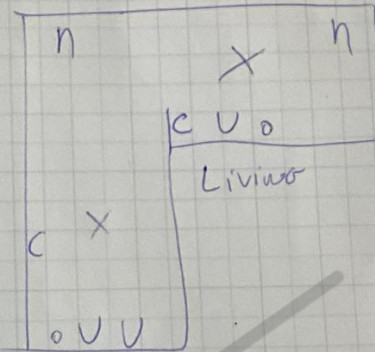 n n
X
C U o
Living
C X
o U U